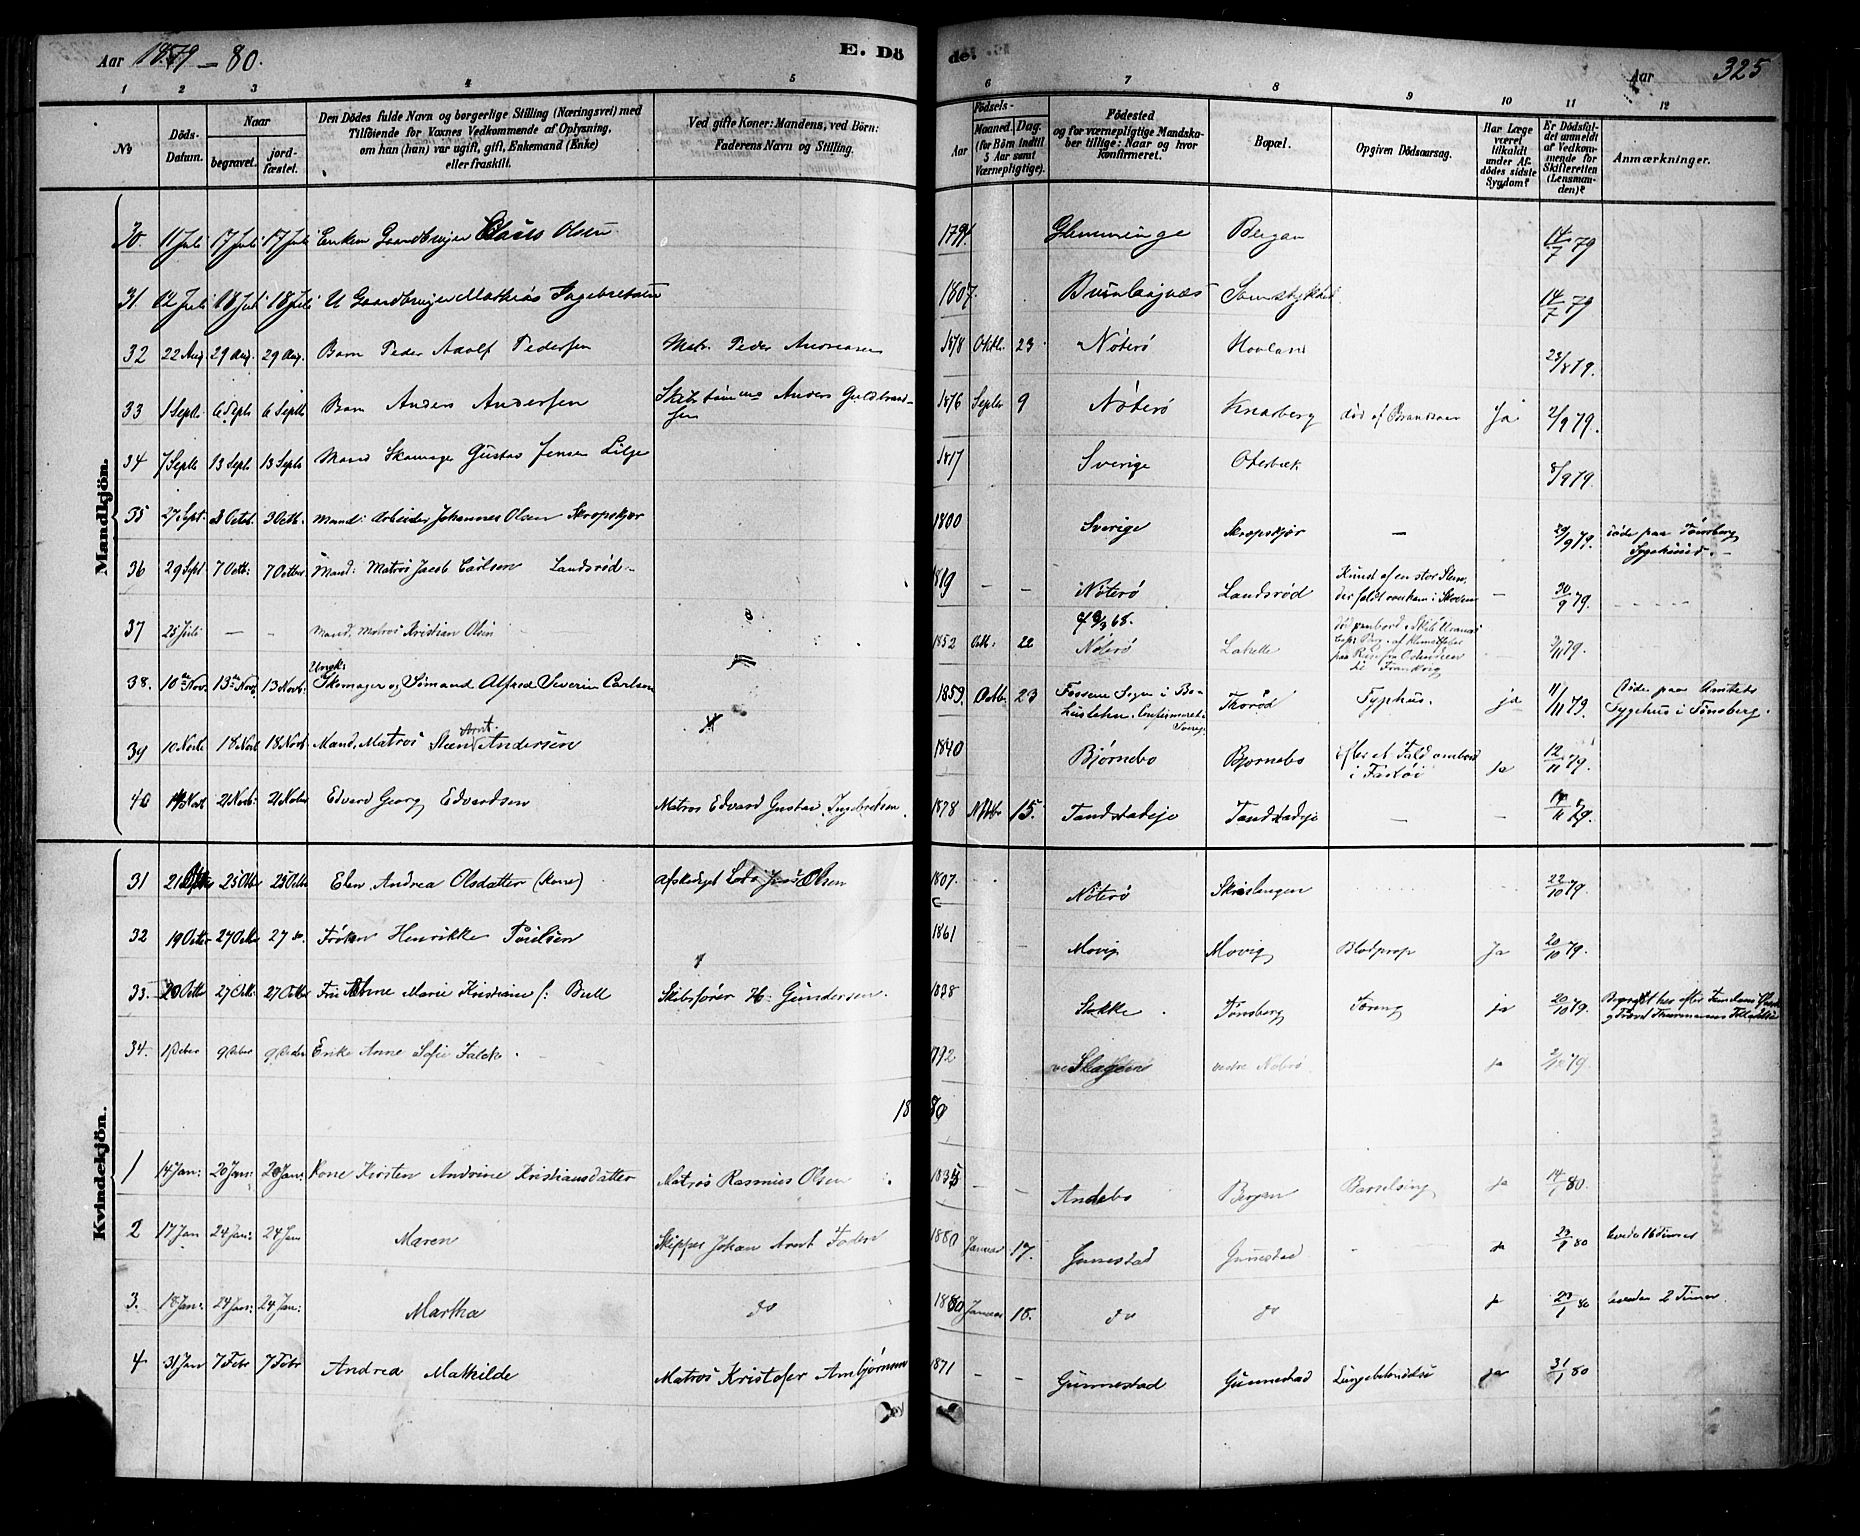 Aar 1879 - 80. E. Dö de. Aar 325
1 2 3 4 5 6 7 8 9 10 11 12
No Döds-Datum. Naar begravet. jordfæstet. Den Dödes fulde Navn og borgerlige Stilling (Næringsvei) med Tilföiende for Voxnes Vedkommende af Oplysning, om han (hun) var ugift, gift, Enkemand (Enke) eller fraskilt. Ved gifte Koner: Mandens, ved Börn: Faderens Navn og Stilling. Födsels- Aar Maaned. Dag. (for Börn indtil 5 Aar samt Værnepligtige). Födested og for værnepligtige Mandskaber tillige: Naar og hvor konfirmeret. Bopæl. Opgiven Dödsaarsag. Har Læge været tilkaldt under Afdödes sidste Sygdom? Er Dödsfaldet anmeldt af Vedkommende for Skifteretten (Lensmanden)? Anmærkninger.
Mandkjön.
30. 11 Juli 17 Juli 17 Juli Enkem Gaardbruger Claus Olsen 1794 Glemminge Bergan 14/7 79
31. 12 Juli 18 Juli 18 Juli Gaardbruger Mathias Ingebretsen 1807. 14/7 79
32 22 Aug. 29 Aug. 29 Aug. Barn Peder Adolf Pedersen Matr. Peder Andreasen 1878 Oktb. 23 Nöterö Hovland 23/8 79.
33 1 Septb. 6 Septb. 6 Septb Barn Anders Andersen Anders Guldbrandsen 1876 Septbr 9 Nöterö Knarberg död af Ja 2/9 79.
34 7 Septb 13 Septb 13 Septb Mand Skomager Gustav Jensen Lilje 1817 Sverige Oterbæk 8/9 79.
35 27 Sept. 3 Octb. 3 Octb. Mand: Arbeider Johannes Olsen Skropskjær 1800 Sverige Skropskjær — 29/9 79. döde paa Tönsberg Sygehuus.
36 29 Sept 7 Octb: 7 Octbr Mand: Matros Jacob Carlsen Landsröd 1819 - - Nöterö Landsröd Knust af en stor Steen, der faldt over ham i Skoven - 30/9 79.
37 25 Juli - - Mand. Matros Kristian Olsen 1852 Octb: 22 Nöterö 79.
38. 10de Nov. 13de Nov. 13 Novb. Ungk: Skomager og Sömand Alfred Severin Carlsen 1859. Octb. 23 Fossene Sogn i Bohuslehn. Confirmeret i Sverig Thoröd Typhus. ja 11/11 79. Döde paa Amtets Sygehus i Tönsberg.
39 10 Novb 18 Novb 18 Novb. Mand, Matros Steen Arnt Andersen 1840 Björnebo Björnebo efter et Fald ombord ja 12/11 79.
40 14 Novb 21 Novb: 21 Novbr Edvard Georg Edvardsen Matros Edvard Gustav Ingebretsen 1878 Novbr 15. - - 79.
Kvindekjön.
31 21 Octbr 25 Octb 25 Octb Elen Andrea Olsdatter (Kone) Afskediget Lods Jens Olsen 1807. Nöterö 22/10 79.
32 19 Octbr 27 Octb 27 do Fröken Henrikke Poulsen 1861 Movig Movig Blodprop Ja 20/10 79.
33. 20 Octbr 27 Octb: 27 Octbr Fru Anne Marie Kristiane f: Bull Skibsförer H. Gundersen. 1838 Stokke Tönsberg Tæring ja 20/10 79.
34. 1 Decbr 9 Decbr 9 Decbr Enke Anne Sofie Falck. 1792 Nöterö ja 2/12 79
1880
1 14 Jan: 20 Jan: 20 Jan: Kone Kirsten Andrine Kristiansdatter Matros Rasmus Olsen 1835 - - Andebo Bergan Barselseng ja 14/1 80.
2 17 Jan 24 Jan: 24 Jan Maren Skipper Johan Arnt Foden 1880 Januar 17. Gunnestad Gunnestad ja 80 levede 16 Timer
3. 18 Jan: 24 Jan: 24 Jan: Martha do 1880 Januar 18. do do ja 80 levede 2 Timer
4 31 Jan 7 Febr 7 Febr Andrea Mathilde Matros Kristofer Arnbjörnsen 1871 - - Gunnestad Gunnestad Lungebetændelse ja 31/1 80